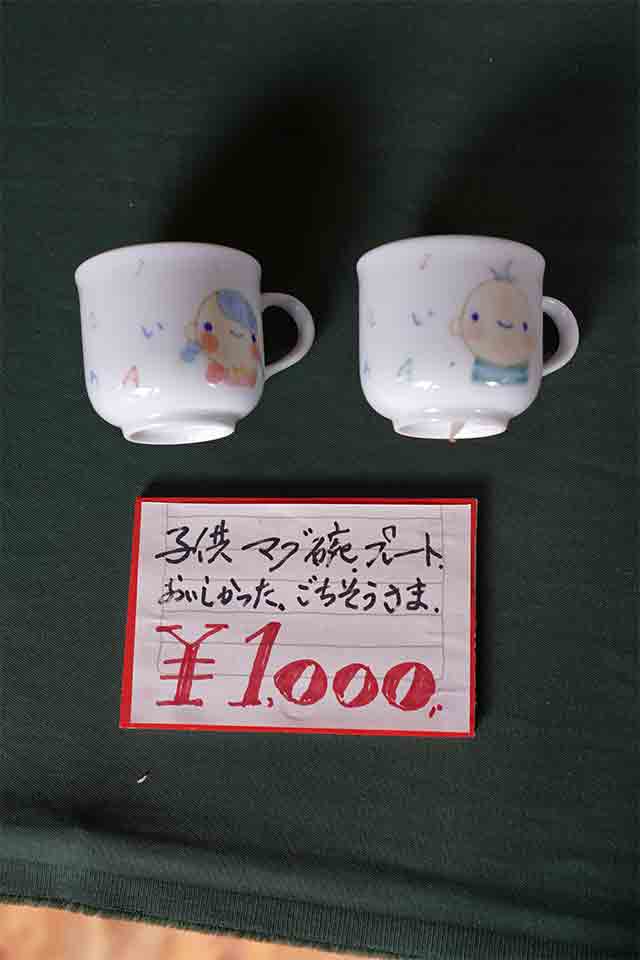 い
A
い
A
子供 マグ 碗. プレート.
おいしかった、ごちそうさま.
¥1,000.